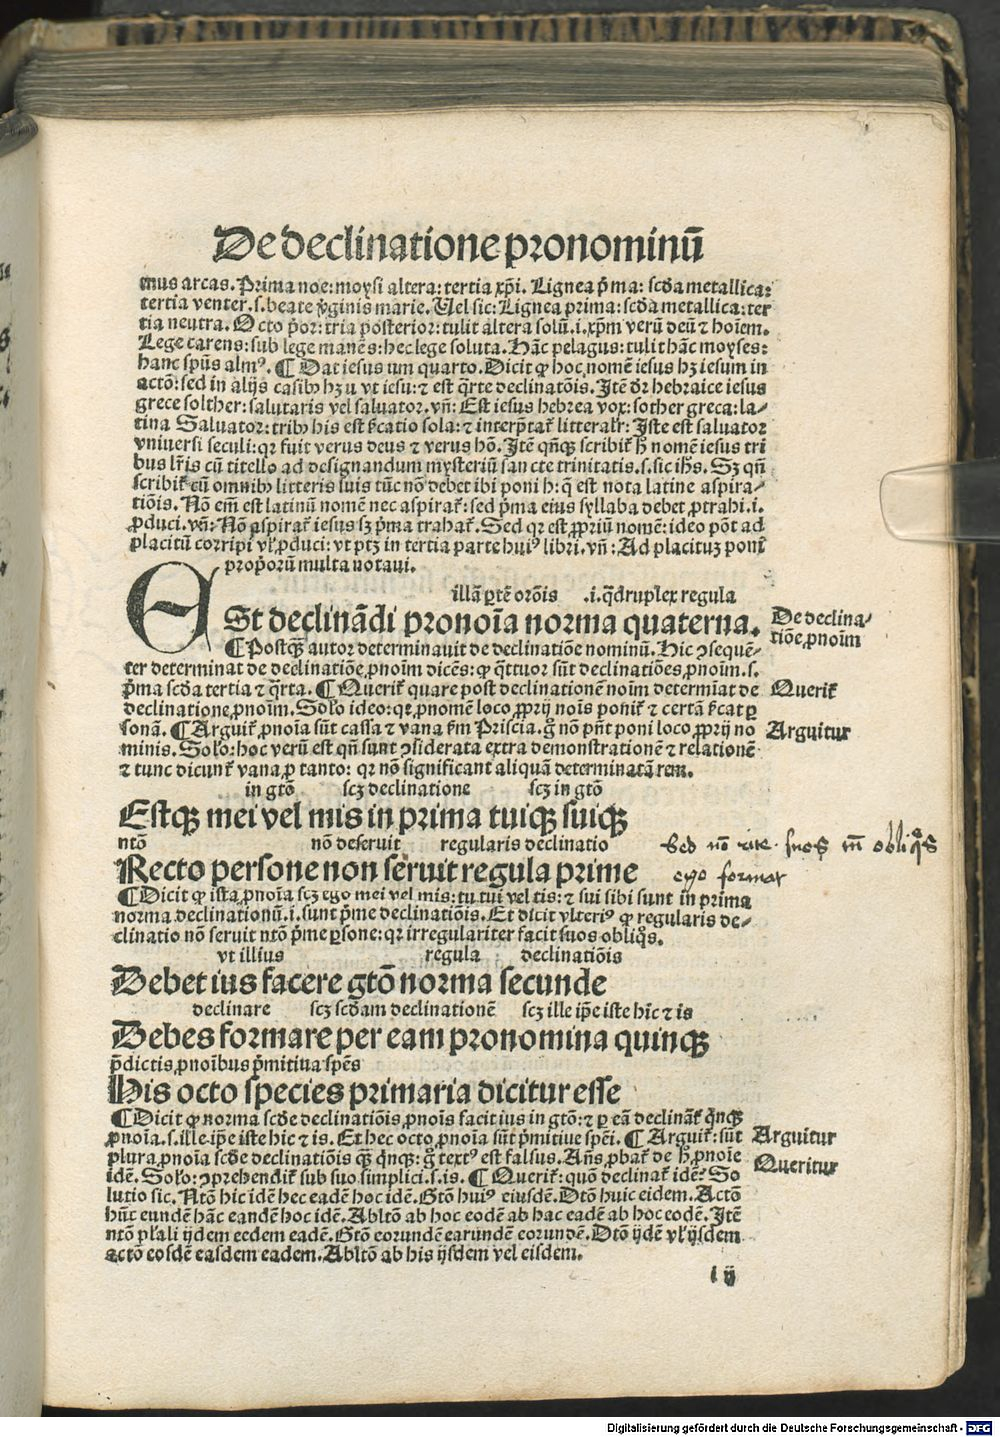 De declinatione pronominū
mus arcas. Prima noe: moysi altera: tertia xp̄i. Lignea p̄ma: scd̄a metallica:
tertia venter .s. beate v̓ginis marie. Uel sic: Lignea prima: scd̄a metallica: ter
tia neutra. Octo p̄or: tria posterior: tulit altera solū .i. xp̄m verū deū ⁊ hoīem.
Lege carens: sub lege manēs: hec lege soluta. Hāc pelagus: tulit hāc moyses:
hanc sp̄us almꝰ. ¶ Dat iesus um quarto. Dicit ꝙ hoc nomē iesus hꝫ iesum in
actō: sed in alijs casibꝰ hꝫ u vt iesu: ⁊ est q̄rte declinatōis. Itē dr̄ hebraice iesus
grece solther: salutaris vel saluator. vn̄: Est iesus hebrea vox: sother greca: la⸗
tina Saluator: tribꝰ his est fc̄atio sola: ⁊ interp̄tat᷑ litteralr̄: Iste est saluator
vniuersi seculi: qꝛ fuit verus deus ⁊ verus hō. Itē qn̄qꝫ scribit᷑ h̄ nomē iesus tri
bus lr̄is cū titello ad designandum mysteriū sancte trinitatis .s. sic ih̄s. Sꝫ qn̄
scribit᷑ cū omnibꝰ litteris suis tūc nō debet ibi poni h: q̄ est nota latine aspira⸗
tiōis. Nō em̄ est latinū nomē nec aspirat᷑: sed p̄ma eius syllaba debet ꝓtrahi .i.
ꝓduci. vn̄: Nō aspirat᷑ iesus sꝫ p̄ma trahat᷑. Sed qꝛ est ꝓpriū nomē: ideo pōt ad
placitū corripi vl̓ ꝓduci: vt ptꝫ in tertia parte huiꝰ libri. vn̄: Ad placituꝫ poni
propōrū multa notaui.
illā ꝑtē orōis .i. q̄druplex regula
ESt declinādi pronoīa norma quaterna.
De declina⸗
tiōe ꝓnoīm
¶ Postqꝫ̄ autor determinauit de declinatiōe nominū. Hic ꝯsequē⸗
ter determinat de declinatiōe ꝓnoīm dicēs: ꝙ q̄ttuor sūt declinatiōes ꝓnoīm .s.
p̄ma scd̄a tertia ⁊ q̄rta. ¶ Querit᷑ quare post declinationē noīm determīat de
Querit᷑
declinatione ꝓnoīm. Solō ideo: qꝛ ꝓnomē loco ꝓprij noīs ponit᷑ ⁊ certā fc̄at ꝑ
sonā. ¶ Arguit᷑ ꝓnoīa sūt cassa ⁊ vana fm̄ Priscia. g̊ nō pn̄t poni loco ꝓprij no
Arguitur
minis. Solō: hoc verū est qn̄ sunt ꝯsiderata extra demonstrationē ⁊ relationē
⁊ tunc dicunt᷑ vana ꝓ tanto: qꝛ nō significant aliquā determinatā rem.
in gtō scꝫ declinatione scꝫ in gtō
Estqꝫ mei vel mis in prima tuiqꝫ suiqꝫ
ntō nō deseruit regularis declinatio
Recto persone non seruit regula prime
ego format
¶ Dicit ꝙ ista ꝓnoīa scꝫ ego mei vel mis: tu tui vel tis: ⁊ sui sibi sunt in prima
norma declinationū .i. sunt p̄me declinatiōis. Et dicit vlteriꝰ ꝙ regularis de⸗
clinatio nō seruit ntō p̄me ꝑsone: qꝛ irregulariter facit suos obliq̊s.
vt illius regula declinatiōis
Debet ius facere gtō norma secunde
declinare scꝫ scd̄am declinationē scꝫ ille ip̄e iste hic ⁊ is
Debes formare per eam pronomina quinqꝫ
p̄dictis ꝓnoībus p̄mitiua spēs
His octo species primaria dicitur esse
¶ Dicit ꝙ norma scd̄e declinatiōis ꝓnoīs facit ius in gtō: ⁊ ꝑ eā declinat᷑ q̄nqꝫ
ꝓnoīa .s. ille ip̄e iste hic ⁊ is. Et hec octo ꝓnoīa sūt p̄mitiue spēi. ¶ Arguit᷑: sūt
Arguitur
plura ꝓnoīa scd̄e declinatiōis qꝫ̄ q̄nqꝫ: g̊ textꝰ est falsus. An̄s ꝓbat᷑ de h̄ ꝓnoīe
Queritur
idē. Solō: ꝯprehendit᷑ sub suo simplici .s. is. ¶ Querit᷑: quō declinat᷑ idē? So
lutio sic. Ntō hic idē hec eadē hoc idē. Gtō huiꝰ eiusdē. Dtō huic eidem. Actō
hūc eundē hāc eandē hoc idē. Abltō ab hoc eodē ab hac eadē ab hoc eodē. Itē
ntō pl̓ali ijdem eedem eadē. Gtō eorundē earundē eorundē. Dtō ijdē vl̓ ijsdem
actō eosdē easdem eadem. Abltō ab his ijsdem vel eisdem.
l ij
Digitalisierung gefördert durch die Deutsche Forschungsgemeinschaft - DFG